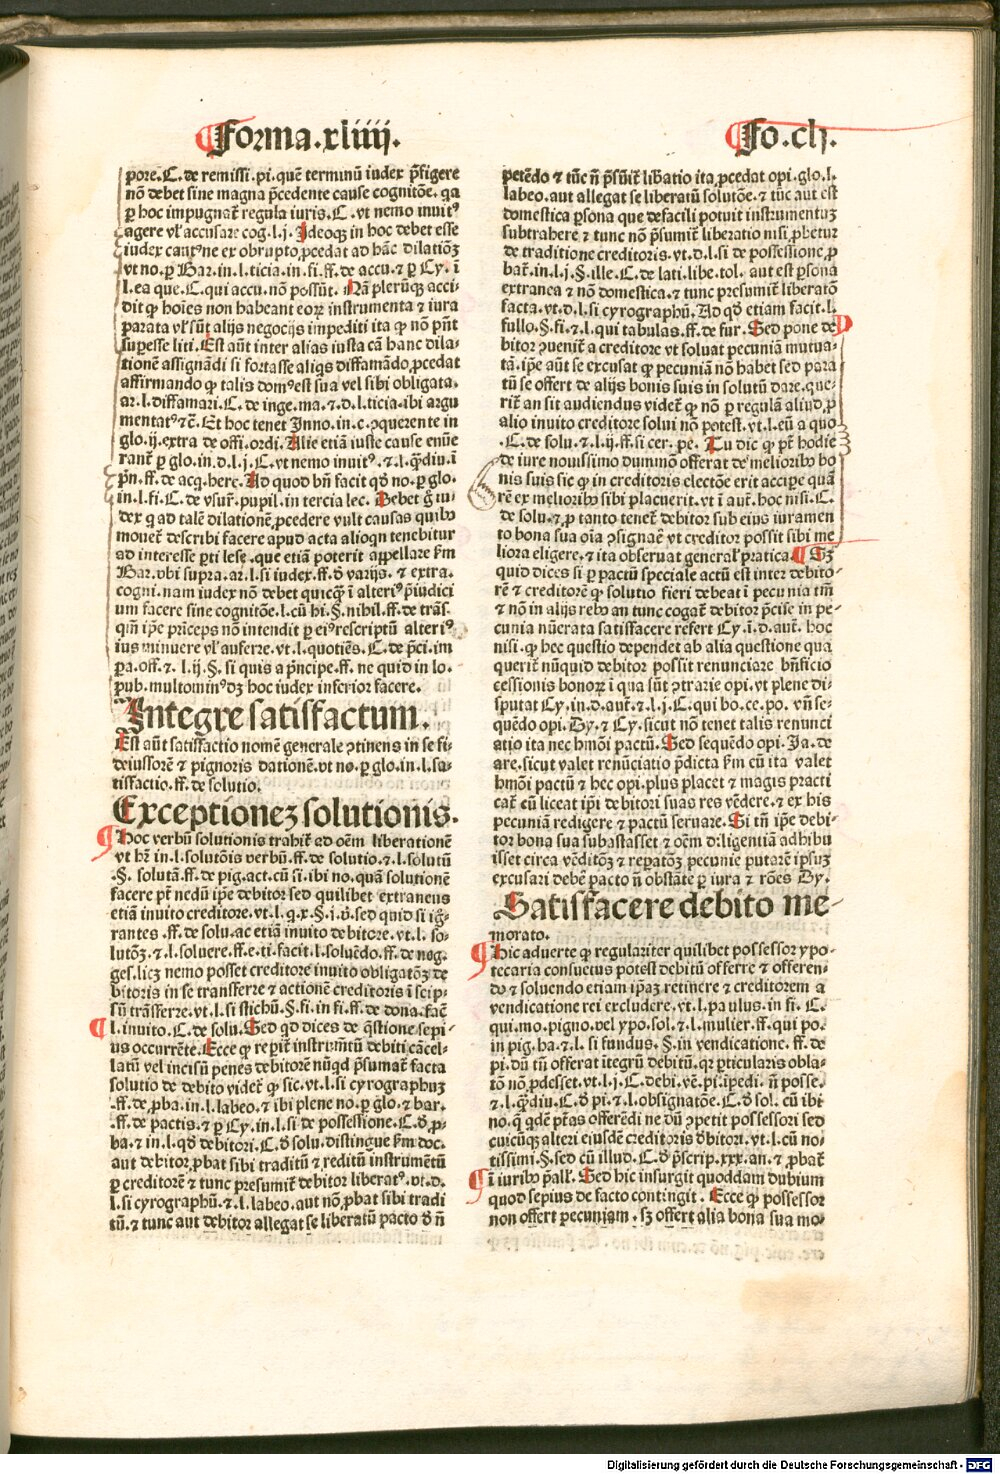 Forma.xliiij.
Fo.clj.
pore.C.de remissi.pi.quē terminū iudex p̄figere
nō debet sine magna p̄cedente cause cognitōe. qa
ꝑ hoc impugnat̄ regula iuris.C.vt nemo inuitꝰ
agere vl̓ accusare cog.l.j. Ideoqꝫ in hoc debet esse
iudex cautꝰne ex obrupto ꝓcedat ad hāc dilatiōꝫ
vt no.ꝑ Bar.in.l.ticia.in.fi.ff.de accu.⁊ ꝑ Cy.ī
l.ea que.C.qui accu.nō possūt. Nā plerūqꝫ acci-
dit ꝙ hoīes non habeant eoꝝ instrumenta ⁊ iura
parata vl̓ sūt alijs negocijs impediti ita ꝙ nō pn̄t
supesse liti. Est aūt inter alias iusta cā hanc dila-
tionē assignādi si fortasse aliqs diffamādo ꝓcedat
affirmando ꝙ talis domꝰest sua vel sibi obligata.
ar.l.diffamari.C.de inge.ma.⁊.d.l.ticia.ibi argu
mentat̄ ⁊c̄. Et hoc tenet Inno.in.c.ꝯquerente in
glo.ij.extra de offi.ordi. Alie etiā iuste cause euēe
rant̄ ꝑ glo.in.d.l.j.C.vt nemo inuitꝰ.⁊.l.qͣdiu.ī
pn̄.ff.de acq.here. Ad quod bn̄ facit qd̓ no.ꝑ glo.
in.l.fi.C.de vsur̄.pupil.in tercia lec. Debet g̊ iu-
dex q ad talē dilationē ꝓcedere vult causas quibꝰ
mouet̄ describi facere apud acta alioqn tenebitur
ad interesse ꝑti lese.que etiā poterit appellare ẜm
Bar.vbi supra.ar.l.si iudex.ff.d̓ varijs.⁊ extra.
cogni.nam iudex nō debet quicqͣꝫ ī alteriꝰ p̄iudici
um facere sine cognitōe.l.cū hi.§.nihil.ff.de trās.
qm̄ ip̄e prīceps nō intendit ꝑ eiꝰrescriptū alteriꝰ
ius minuere vl̓ auferre.vt.l.quotiēs.C.de p̄ci.im
ꝑa.off.⁊.l.ij.§.si quis a p̄ncipe.ff.ne quid in lo.
pub.multominꝰ dꝫ hoc iudex inferior facere.
Integre satisfactum.
Est aūt satisfactio nomē generale ꝯtinens in se fi-
deiussorē ⁊ pignoris dationē.vt no.ꝑ glo.in.l.sa-
tisfactio.ff.de solutio.
Exceptionez solutionis.
Hoc verbū solutionis trahit̄ ad oēm liberationē
vt hr̄ in.l.solutōis verbū.ff.de solutio.⁊.l.solutū
.§.solutā.ff.de pig.act.cū si.ibi no.quā solutionē
facere pt̄ nedū ip̄e debitor sed quilibet extraneus
etiā inuito creditore.vt.l.q.x.§.j.v̓.sed quid si ig̊-
rantes.ff.de solu.ac etiā inuito debitore.vt.l.so-
lutōꝫ.⁊.l.soluere.ff.e.ti.facit.l.soluēdo.ff.de neg.
ges.licꝫ nemo posset creditore inuito obligatōꝫ de
bitoris in se transferre ⁊ actionē creditoris ī seip-
sū trāsferre.vt.l.si stichū.§.fi.in fi.ff.de dona.fac̄
l.inuito.C.de solu. Sed qd dices de q̄stione sepi-
us occurrēte. Ecce ꝙ reꝑit̄ instrūm̄tū debiti cācel-
latū vel incisū penes debitorē nūqd p̄sumat̄ facta
solutio de debito videt̄ ꝙ sic.vt.l.si cyrographuꝫ
.ff.de ꝓba.in.l.labeo.⁊ ibi plene no.ꝑ glo.⁊ bar.
.ff.de pactis.⁊ ꝑ Cy.in.l.si de possessione.C.d̓ ꝓ-
ba.⁊ in.l.qd̓ debitori.C.d̓ solu.distingue ẜm doc.
aut debitor ꝓbat sibi traditū ⁊ reditū instrumētū
ꝑ creditorē ⁊ tunc presumit̄ debitor liberatꝰ.vt.d.
l.si cyrographū.⁊.l.labeo.aut nō ꝓbat sibi tradi
tū.⁊ tunc aut debitor allegat se liberatū pacto d̓ n̄
petēdo ⁊ tūc n̄ p̄sūit̄ libatio ita ꝓcedat opi.glo.l.
labeo.aut allegat se liberatū solutōe.⁊ tūc aut est
domestica ꝑsona que defacili potuit instrumentuꝫ
subtrahere ⁊ tunc nō p̄sumit̄ liberatio nisi ꝓbetur
de traditione creditoris.vt.d.l.si de possessione ꝓ
bat̄.in.l.j.§.ille.C.de lati.libe.tol.aut est ꝑsona
extranea ⁊ nō domestica.⁊ tunc presumit̄ liberatō
facta.vt.d.l.si cyrographū. Ad qd̓ etiam facit.l.
fullo.§.fi.⁊.l.qui tabulas.ff.de fur. Sed pone de
bitor ꝯuenit̄ a creditore vt soluat pecuniā mutua-
tā.ip̄e aūt se excusat ꝙ pecuniā nō habet sed para
tū se offert de alijs bonis suis in solutū dare.que-
rit̄ an sit audiendus videt̄ ꝙ nō ꝑ regulā aliud ꝓ
alio inuito creditore solui nō potest.vt.l.eū a quo
.C.de solu.⁊.l.ij.ff.si cer.pe. Tu dic ꝙ pt̄ hodie
de iure nouissimo dummō offerat de melioribꝰ bo
nis suis sic ꝙ in creditoris electōe erit accipe quā
rē ex melioribꝰ sibi placuerit.vt ī aut̄.hoc nisi.C.
de solu.⁊ ꝓ tanto tenet̄ debitor sub eius iuramen
to bona sua oīa ꝯsignaē vt creditor possit sibi me
liora eligere.⁊ ita obseruat general̓ pratica. Sꝫ
quid dices si ꝑ pactū speciale actū est inter debito-
rē ⁊ creditorē ꝙ solutio fieri debeat ī pecunia tm̄
⁊ nō in alijs rebꝰ an tunc cogat̄ debitor p̄cise in pe-
cunia nūerata satisfacere refert Cy.ī.d.aut̄.hoc
nisi.ꝙ hec questio dependet ab alia questione qua
querit̄ nūquid debitor possit renunciare bn̄ficio
cessionis bonoꝝ ī qua sūt ꝯtrarie opi.vt plene di-
sputat Cy.in.d.aut̄.⁊.l.j.C.qui bo.ce.po. vn̄ se-
quēdo opi. Dy.⁊ Cy.sicut nō tenet talis renunci
atio ita nec hmōi pactū. Sed sequēdo opi. Ja.de
are.sicut valet renūciatio p̄dicta ẜm eū ita valet
hmōi pactū ⁊ hec opi.plus placet ⁊ magis practi
cat̄ eū liceat ip̄i debitori suas res vēdere.⁊ ex his
pecuniā redigere ⁊ pactū seruare. Si tn̄ ip̄e debi-
tor bona sua subastasset ⁊ oēm diligentiā adhibu
isset circa vēditōꝫ ⁊ reꝑatōꝫ pecunie putarē ipsuꝫ
excusari debē pacto n̄ obstāte ꝑ iura ⁊ rōes Dy.
Satisfacere debito me-
morato.
Hic aduerte ꝙ regulariter quilibet possessor ypo-
tecaria conuētus potest debitū offerre ⁊ offeren-
do ⁊ soluendo etiam ip̄aꝫ retinere ⁊ creditorem a
vendicatione rei excludere.vt.l.paulus.in fi.C.
qui.mo.pigno.vel ypo.sol.⁊.l.mulier.ff.qui po.
in pig.ha.⁊.l.si fundus.§.in vendicatione.ff.de
pi.dū tn̄ offerat ītegrū debitū.qꝛ ꝑticularis obla-
tō nō ꝓdesset.vt.l.j.C.debi.vē.pi.īpedi.n̄ posse.
⁊.l.qͣdiu.C.d̓ pi.⁊.l.obsignatōe.C.d̓ sol.cū ibi
no.q̄ qdē pt̄as offerēdi ne dū ꝯpetit possessori sed
cuicūqꝫ alteri eiusdē creditoris d̓bitori.vt.l.cū no-
tissimi.§.sed cū illud.C.d̓ p̄scrip.xxx.an.⁊ ꝓbat̄
ī iuribꝰ p̄all̓. Sed hic insurgit quoddam dubium
quod sepius de facto contingit. Ecce ꝙ possessor
non offert pecuniam.sꝫ offert alia bona sua mo-
Digitalisierung gefördert durch die Deutsche Forschungsgemeinschaft - DFG